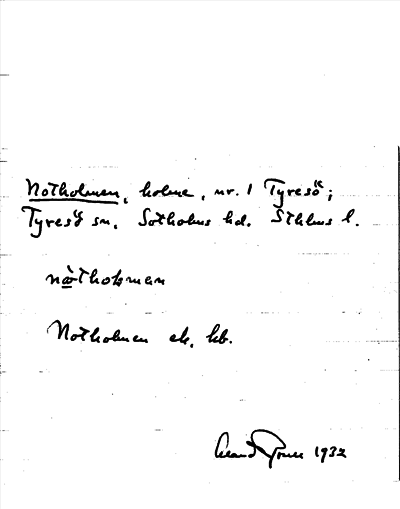 Notholmen, holme, nr. 1 Tyresö;
Tyresö sn. Sotholms hd. Sthlms l.
Notholmen ek. kb.
1932